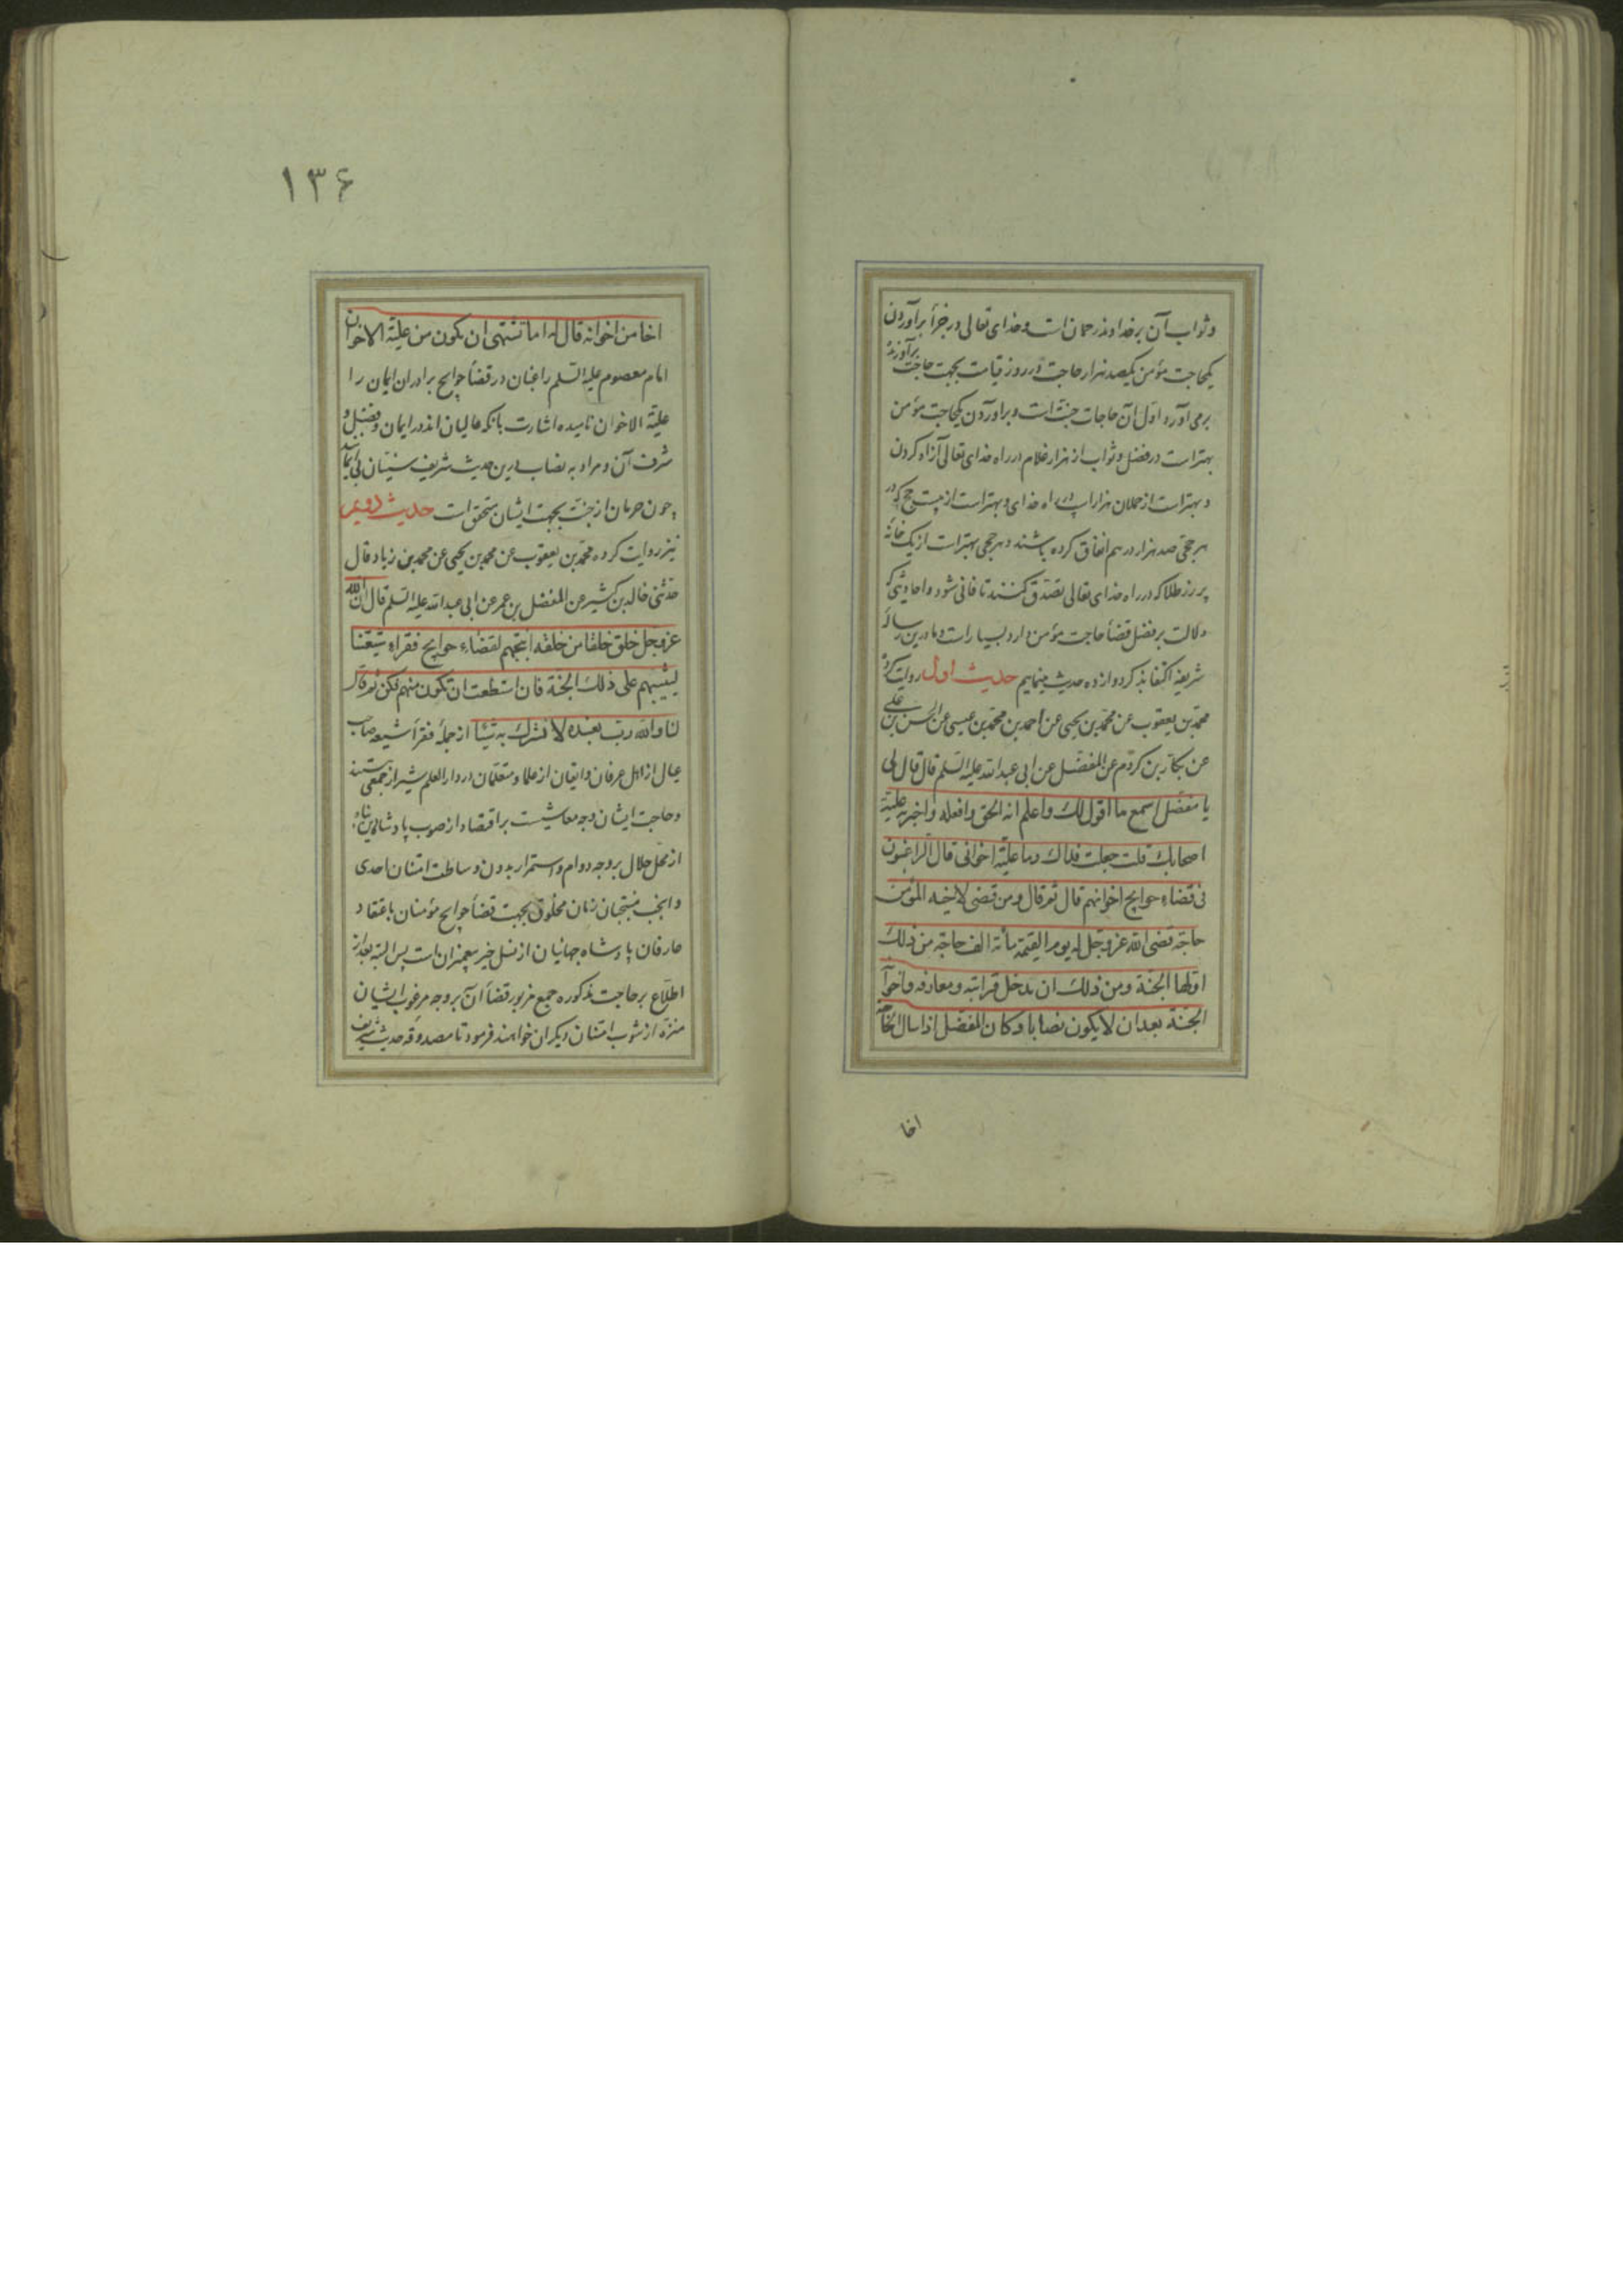 وثواب آن بر خداوند رحمان است و خدای تعالی در جزأ برآوردن
یکحاجت مؤمن یکصد هزار حاجت در روز قیامت بجهت حاجت برآورنده
برمی آورد اول آن حاجات جنت است و براوردن یکحاجت مؤمن
بهتر است در فضل و ثواب از هزار غلام در راه خدای تعالی آزاد کردن
و بهتر است از حملان هزار اسپ در راه خدای و بهتر است از بیست حج که در
هر حجی صد هزار درهم انفاق کرده باشند و هر حجی بهتر است از یک خانه
پر زر طلا که در راه خدای تعالی تصدق کنند تا فانی شود و احادیثی که
دلالت بر فضل قضأ حاجت مؤمن دارد بسیار است و ما درین رساله
شریفه اکتفا بذکر دوازده حدیث مینمایم حدیث اول روایت کرده
محمد بن یعقوب عن محمد بن یحیی عن احمد بن محمد بن عیسی عن الحسن بن علی
عن بکار بن کردم عن المفضل عن ابی عبدالله علیه السلم قال قال لی
یا مفضل اسمع ما اقول لك واعلم انه الحق وافعله واخبر به علیة
اصحابك قلت جعلت فداك وما علیة اخوانی قال الراغبون
فی قضاء حوایج اخوانهم قال ثم قال ومن قضی لاخیه المؤمن
حاجة قضی الله عز وجل له یوم القیمة مأئة الف حاجة من ذلك
اولها الجنة ومن ذلك ان یدخل قرابته ومعارفه واخوانه
الجنة بعد ان لا یکون نصابا وکان المفضل اذا سال الحاجة
اخا
۱۳۶
اخا من اخوانه قال له اما تشتهی ان یکون من علیة الاخوان
امام معصوم علیه السلم راغبان در قضأ حوایج برادران ایمان را
علیة الاخوان نامیده اشارت بانکه عالیان اند در ایمان و فضل و
شرف آن و مراد به نصاب درین حدیث شریف سنیان بی ایمانند
چون حرمان از جنت بجهت ایشان متحقق است حدیث دویم
نیز روایت کرده محمد بن یعقوب عن محمد بن یحیی عن محمد بن زیاد قال
حدثنی خالد بن کثیر عن المفضل بن عمر عن ابی عبدالله علیه السلم قال ان الله
عز وجل خلق خلقا من خلقه انتجبهم لقضاء حوایج فقراء شیعتنا
لیثیبهم علی ذلك الجنة فان استطعت ان تکون منهم فکن ثم قال
لنا والله رب نعبده لا نشرك به شیئا از جمله فقرأ شیعه صاحب
عیال از اهل عرفان و ایقان از علما و متعلمان در دار العلم شیراز جمعی هستند
و حاجت ایشان وجه معاشیست بر اقتصاد از صوب پادشاه دین پناه
از محل حلال بر وجه دوام و استمرار بدون وساطت امتنان احدی
و انجب منتجبان زمان مخلوق بجهت قضأ حوایج مؤمنان باعتقاد
عارفان پادشاه جهانیان از نسل خیر پیغمبران است پس البته بعد از
اطلاع بر حاجت مذکوره جمع مزبور قضأ آن بر وجه مرغوب ایشان
منزه از شوب امتنان دیگران خواهند فرمود تا مصدوقه حدیث شریف